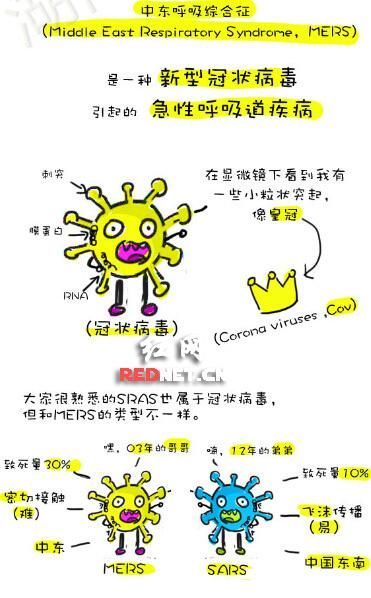 中东呼吸综合征
(Middle East Respiratory Syndrome, MERS)
是一种 新型冠状病毒
引起的 急性呼吸道疾病
刺突
膜蛋白
RNA
(冠状病毒)
在显微镜下看到我有
一些小粒状突起,
像皇冠
(Corona viruses ,Cov)
红网
REDNET.CN
大家很熟悉的SRAS也属于冠状病毒,
但和MERS的类型不一样。
嘿, 03年的哥哥
嗨, 12年的弟弟
致死量30%
密切接触
(难)
中东
MERS
致死量10%
飞沫传播
(易)
中国东南
SARS